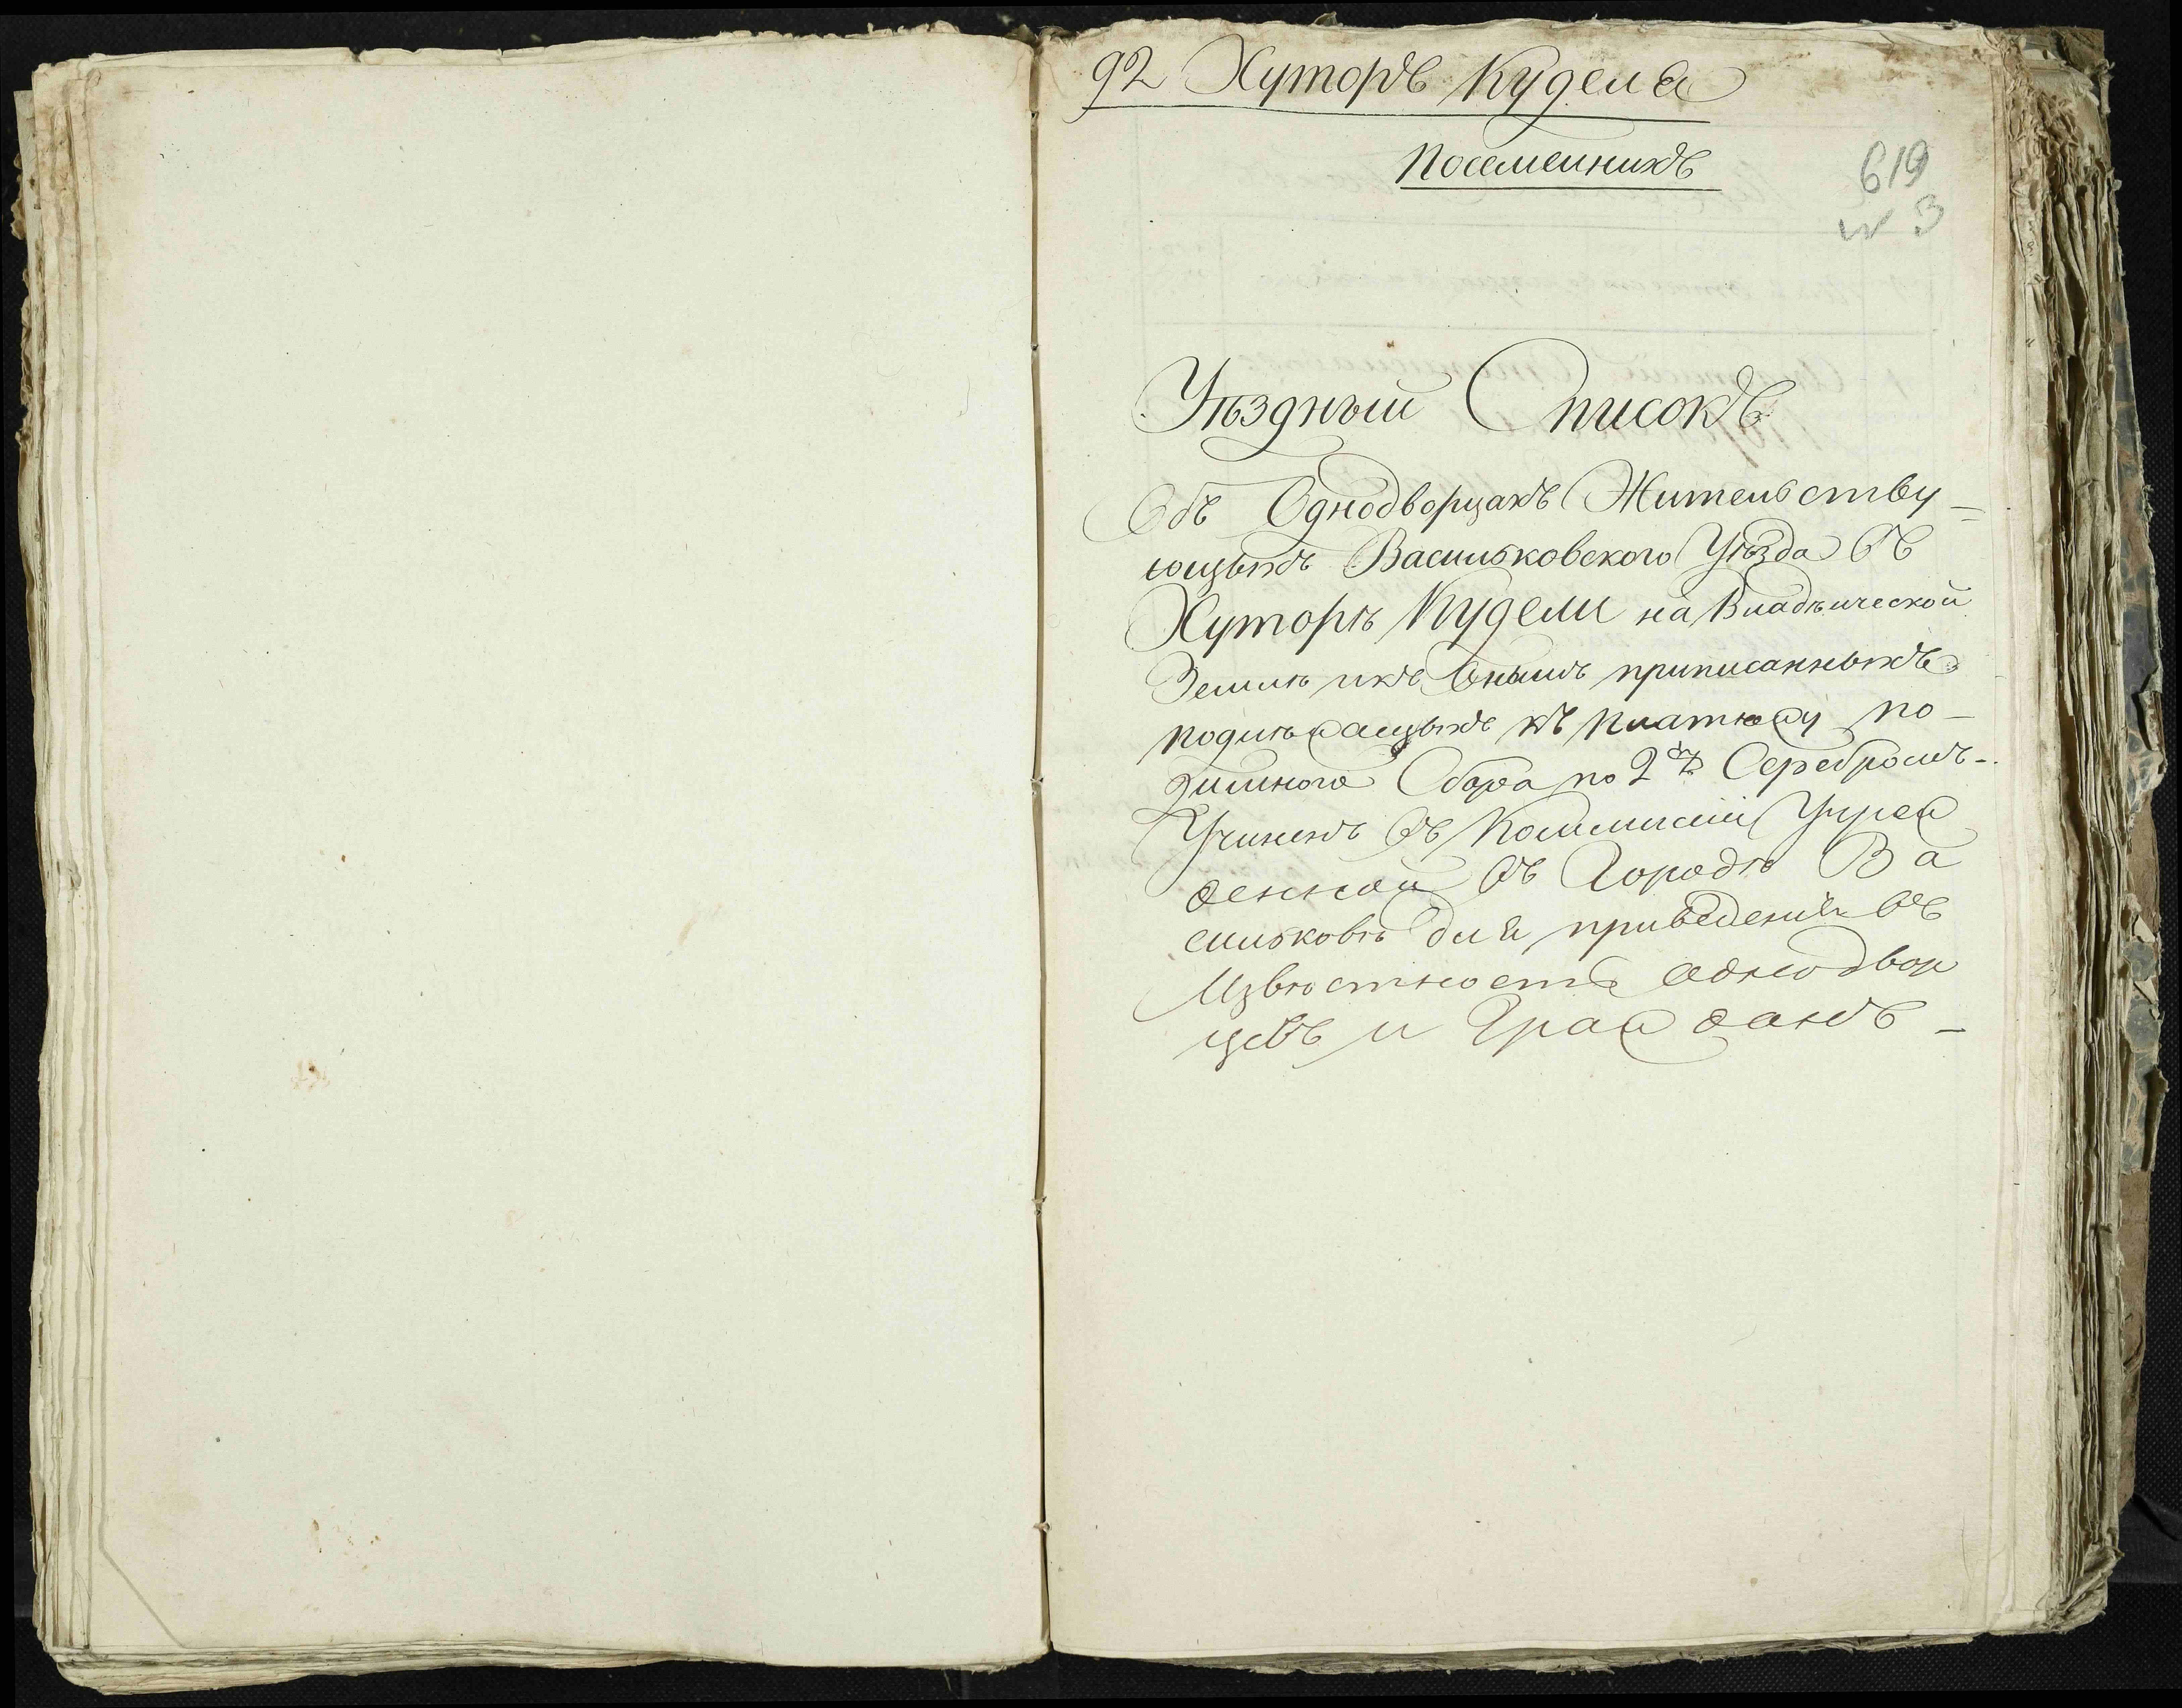 92 Хуторъ Куделя
Посемейникъ
619
№ 3
Уѣздный Списокъ
Объ Однодворцахъ Жительству=
ющыхъ Васильковского Уѣзда въ
Хуторѣ Кудели на Владѣческой
Землѣ икъ онымъ приписанныхъ
подлѣжащыхъ къ платежу по-
дымного Сбора по 2 Серебромъ-
Учиненъ въ Коммисіи Учреж
денной въ Городѣ Ва
сильковѣ для приведенія въ
Извѣстность однодвор
цовъ и Гражданъ -